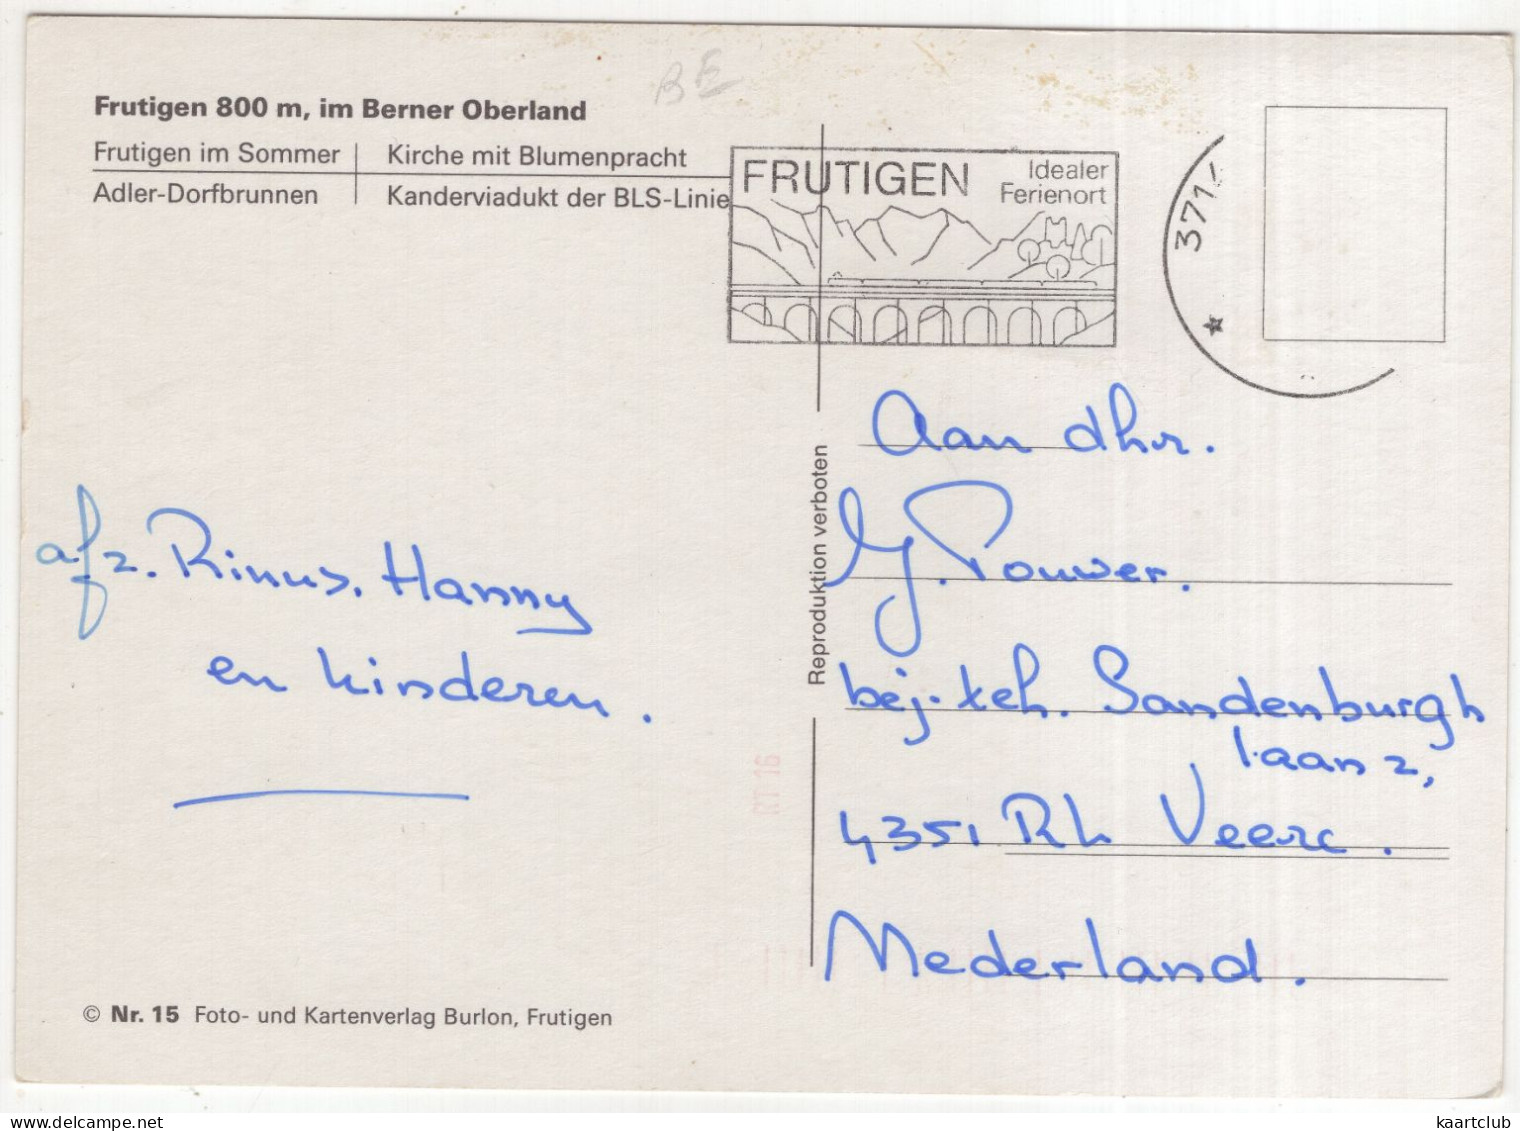 BE
Frutigen 800 m, im Berner Oberland
Frutigen im Sommer | Kirche mit Blumenpracht
Adler-Dorfbrunnen | Kanderviadukt der BLS-Linie
FRUTIGEN
Idealer
Ferienort
371
Aan dhr.
G. Pouwer.
bej. teh. Sandenburgh
laan 2,
4351 Rh Veere.
Nederland.
afz. Rinus, Hanny
en kinderen.
Reproduktion verboten
RT 16
© Nr. 15 Foto- und Kartenverlag Burlon, Frutigen
delcampe.net
kaartclub